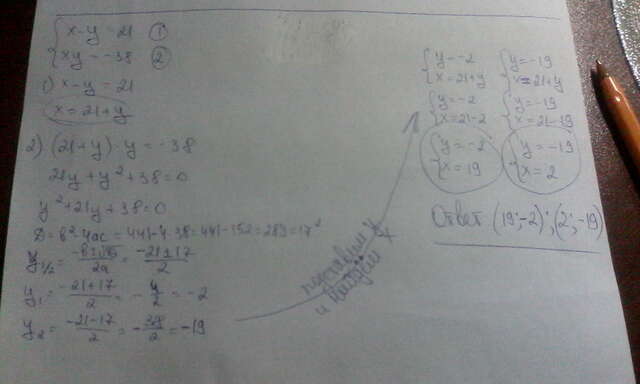 x-y=21 ①
xy=-38 ②
1) x-y=21
x=21+y
2) (21+y)·y=-38
21y+y²+38=0
y²+21y+38=0
D=в²-4ac=441-4·38=441-152=289=17²
y₁/₂=(-в±√D)/2a=(-21±17)/2
y₁=(-21+17)/2=-4/2=-2
y₂=(-21-17)/2=-38/2=-19
подставим y
и найдём x
y=-2
x=21+y
y=-2
x=21-2
y=-2
x=19
y=-19
x=21+y
y=-19
x=21-19
y=-19
x=2
Ответ (19;-2);(2;-19)